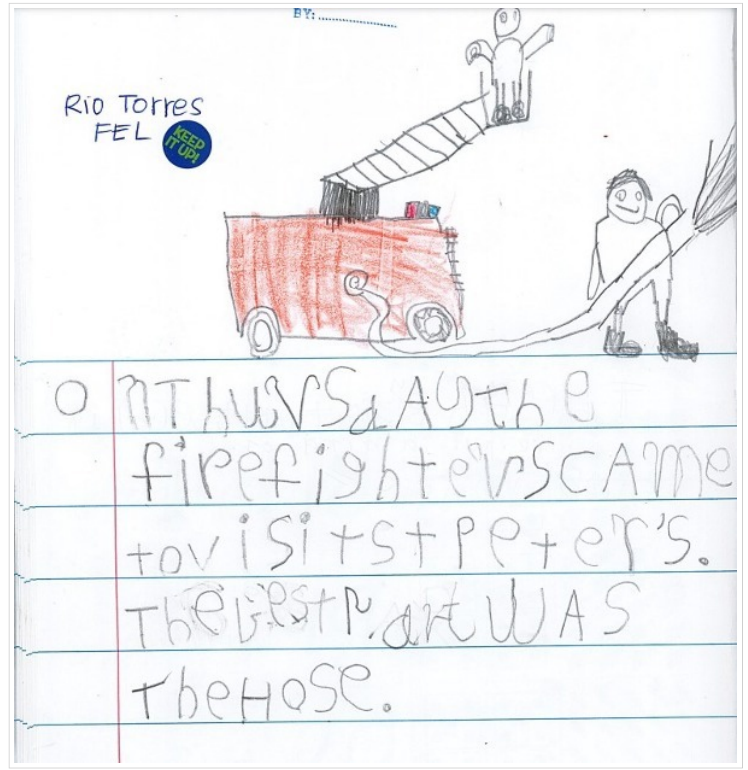 BY:
Rio Torres
FEL
KEEP
IT UP!
On Thursday the
firefighters came
to visit st Peter's.
The best Part WAS
The Hose.